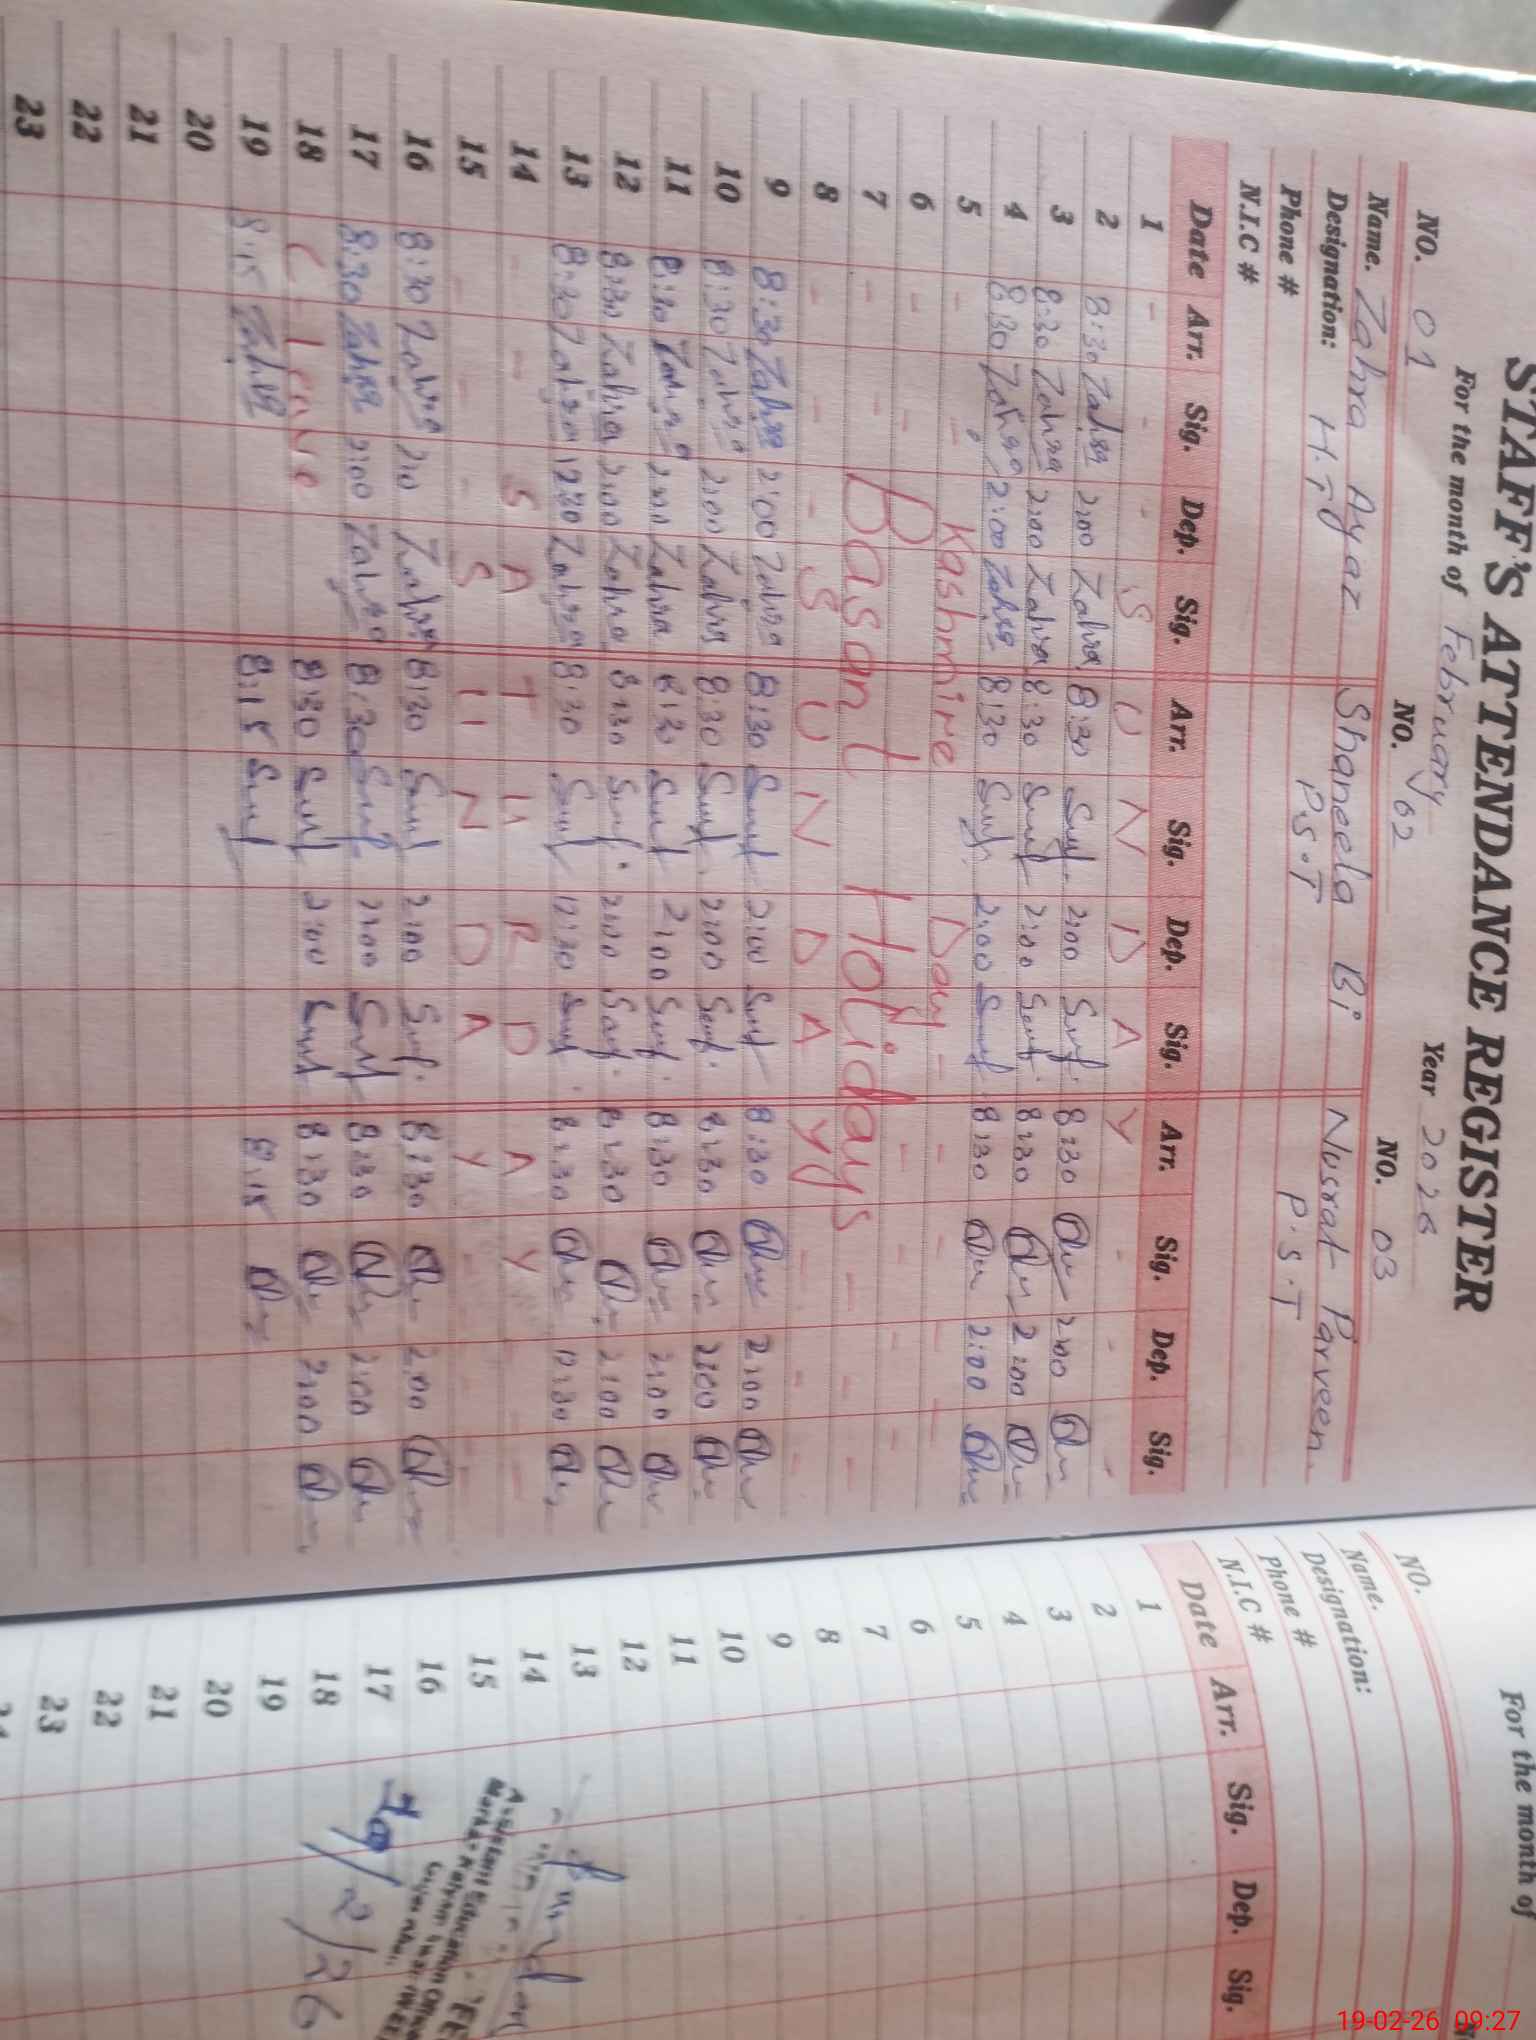 STAFF'S ATTENDANCE REGISTER
For the month of February Year 2026
NO. 01 NO. 02 NO. 03
Name. Zahra Ayaz Shaneela Bi Nusrat Parveen
Designation: H.T P.S.T P.S.T
Phone #
N.I.C #
Date Arr. Sig. Dep. Sig. Arr. Sig. Dep. Sig. Arr. Sig. Dep. Sig.
1 - - - S U N D A Y - - -
2 8:30 Zahra 2:00 Zahra 8:30 2:00 8:30 2:00
3 8:30 Zahra 2:00 Zahra 8:30 2:00 8:30 2:00
4 8:30 Zahra 2:00 Zahra 8:30 2:00 8:30 2:00
5 - - Kashmire Day - - - -
6 - -
7 - - Basant Holidays - -
8 - - - S U N D A Y - - -
9 8:30 Zahra 2:00 Zahra 8:30 2:00 8:30 2:00
10 8:30 Zahra 2:00 Zahra 8:30 2:00 8:30 2:00
11 8:30 Zahra 2:00 Zahra 8:30 2:00 8:30 2:00
12 8:30 Zahra 2:00 Zahra 8:30 2:00 8:30 2:00
13 8:30 Zahra 12:30 Zahra 8:30 12:30 8:30 12:30
14 - - S A T U R D A Y - -
15 - - - S U N D A Y - - -
16 8:30 Zahra Zahra 8:30 2:00 8:30 2:00
17 8:30 Zahra 2:00 Zahra 8:30 2:00 8:30 2:00
18 C-Leave 8:30 2:00 8:30 2:00
19 8:15 Zahra 8:15 8:15
20
21
22
23
For the month of
NO.
Name.
Designation:
Phone #
N.I.C #
Date Arr. Sig. Dep. Sig.
1
2
3
4
5
6
7
8
9
10
11
12
13
14
15
16
17
18
19
20
21
22
23
Assistant Education
19/2/26
19-02-26 09:27